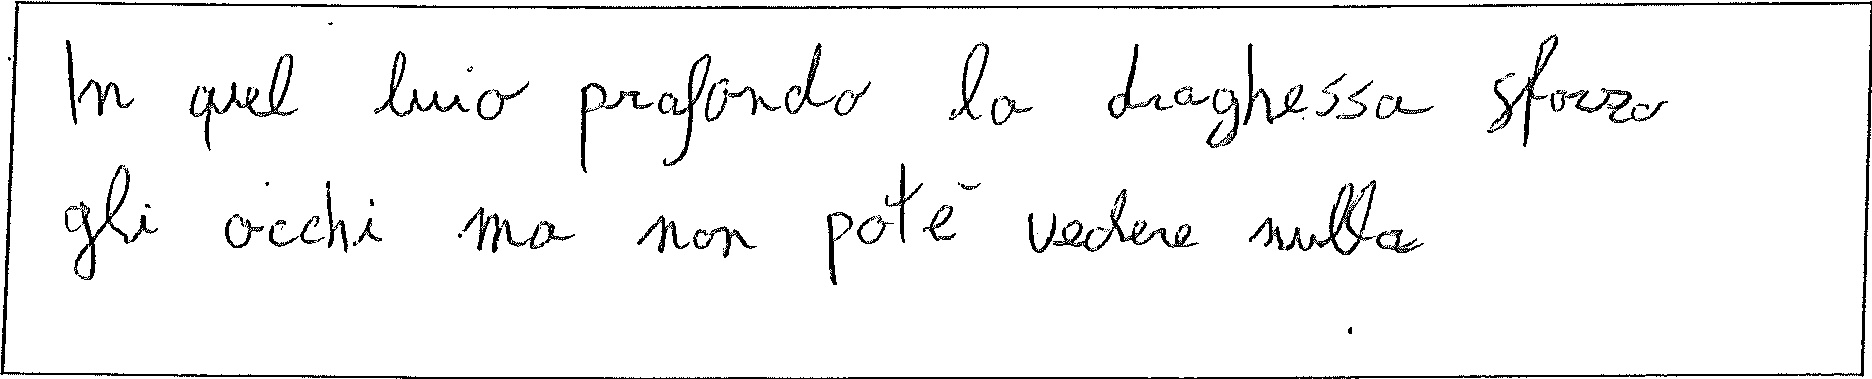 In quel buio profondo la draghessa sforzo
gli occhi ma non potè vedere nulla